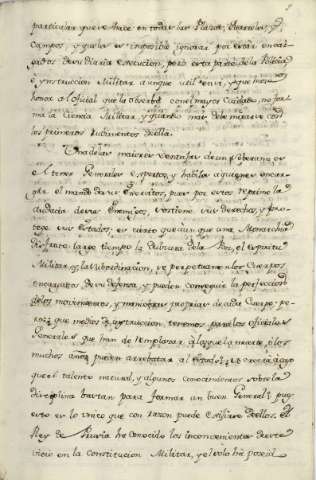 particular que se hace en todas las Plazas, Quarteles, y
Campos, y que les es imposible ignorar por estar encar-
gados de su diaria execucion, pero esta parte de la
Ynstruccion Militar aunque util en si, y que
honor al Oficial que la observa con el mayor Cuidado, no for-
ma la Ciencia Militar, y quando mas debe mirarse con
los primeros rudimentos de ella.
Una de las maiores ventajas de un Soberano es
el tener Generales Expertos, y habiles a quienes encar-
gar el mando de sus Exercitos, pues por estos reprime la
audacia de sus Enemigos, sostiene sus derechos, y pro-
tege sus Estados; es cierto que si en una Monarchia
disfruta largo tiempo la dulzura de la Paz, el espiritu
Militar, y la Subordinacion, se perpetuan en los Cuerpos
encargados de su defensa, y pueden conseguir la perfeccion
de los movimientos, y maniobras propias de cada Cuerpo; pe-
ro que medios de ynstruccion, tenemos para los oficiales
Generales que han de remplazar, a los que la muerte, o los
muchos años, pueden arrebatar al Estado;
que el talento natural, y algunos conocimientos sobre la
disciplina bastan para formar un buen General, pues
esto es lo unico que con razon puede Exigirse de ellos. El
Rey de Prusia ha conocido los inconvenientes de este
vicio en la Constitucion Militar, y el solo ha